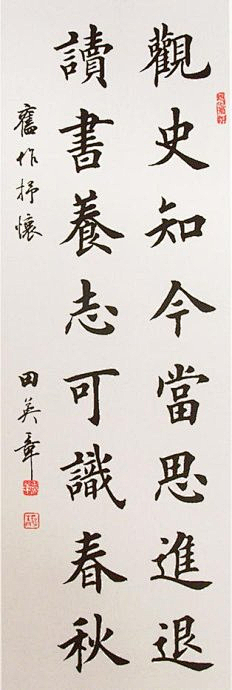 觀史知今當思進退
讀書養志可識春秋
舊作抒懷 田英章